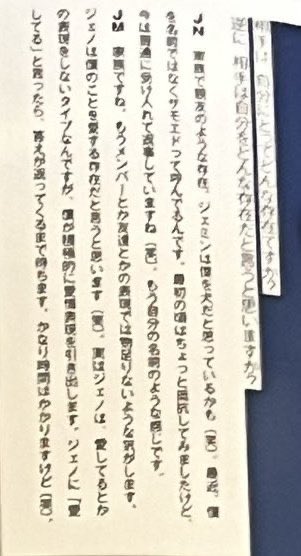 相手は、自分にとってどんな存在ですか？
逆に、相手は自分をどんな存在だと言うと思いますか？
JN　家族で親友のような存在。ジェミンは僕を犬だと思っているかも（笑）。最近、僕
を名前ではなくサモエドって呼んでるんです。最初の頃はちょっと抵抗してみましたけど、
今は普通に受け入れて返事していますね（笑）。もう自分の名前のような感じです。
JM　家族ですね。もうメンバーとか友達とかの表現では物足りないような気がします。
ジェノは僕のことを愛する存在だと言うと思います（笑）。実はジェノは、愛してるとか
の表現をしないタイプなんですが、僕が積極的に愛情表現を引き出します。ジェノに「愛
してる」と言ったら、答えが返ってくるまで待ちます。かなり時間はかかりますけど（笑）。